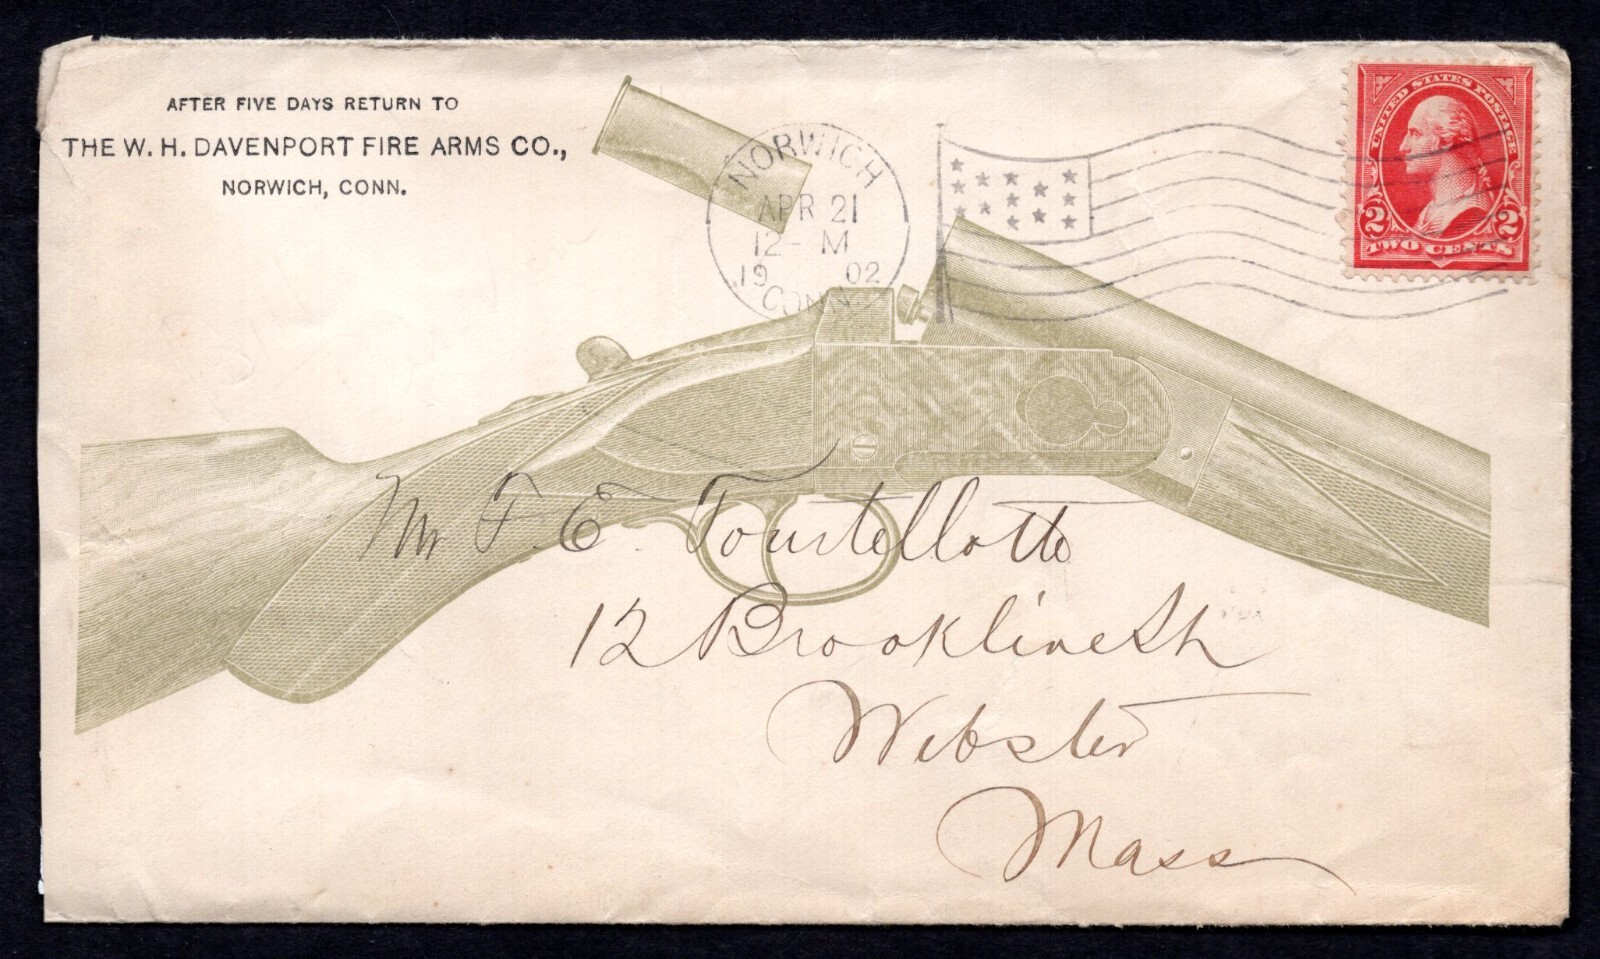 AFTER FIVE DAYS RETURN TO
THE W. H. DAVENPORT FIRE ARMS CO.,
NORWICH, CONN.
NORWICH
APR 21
12- M
19 02
CONN.
UNITED STATES POSTAGE
2 2
TWO CENTS
Mr F. E. Tourtellotte
12 Brookline St.
Webster
Mass